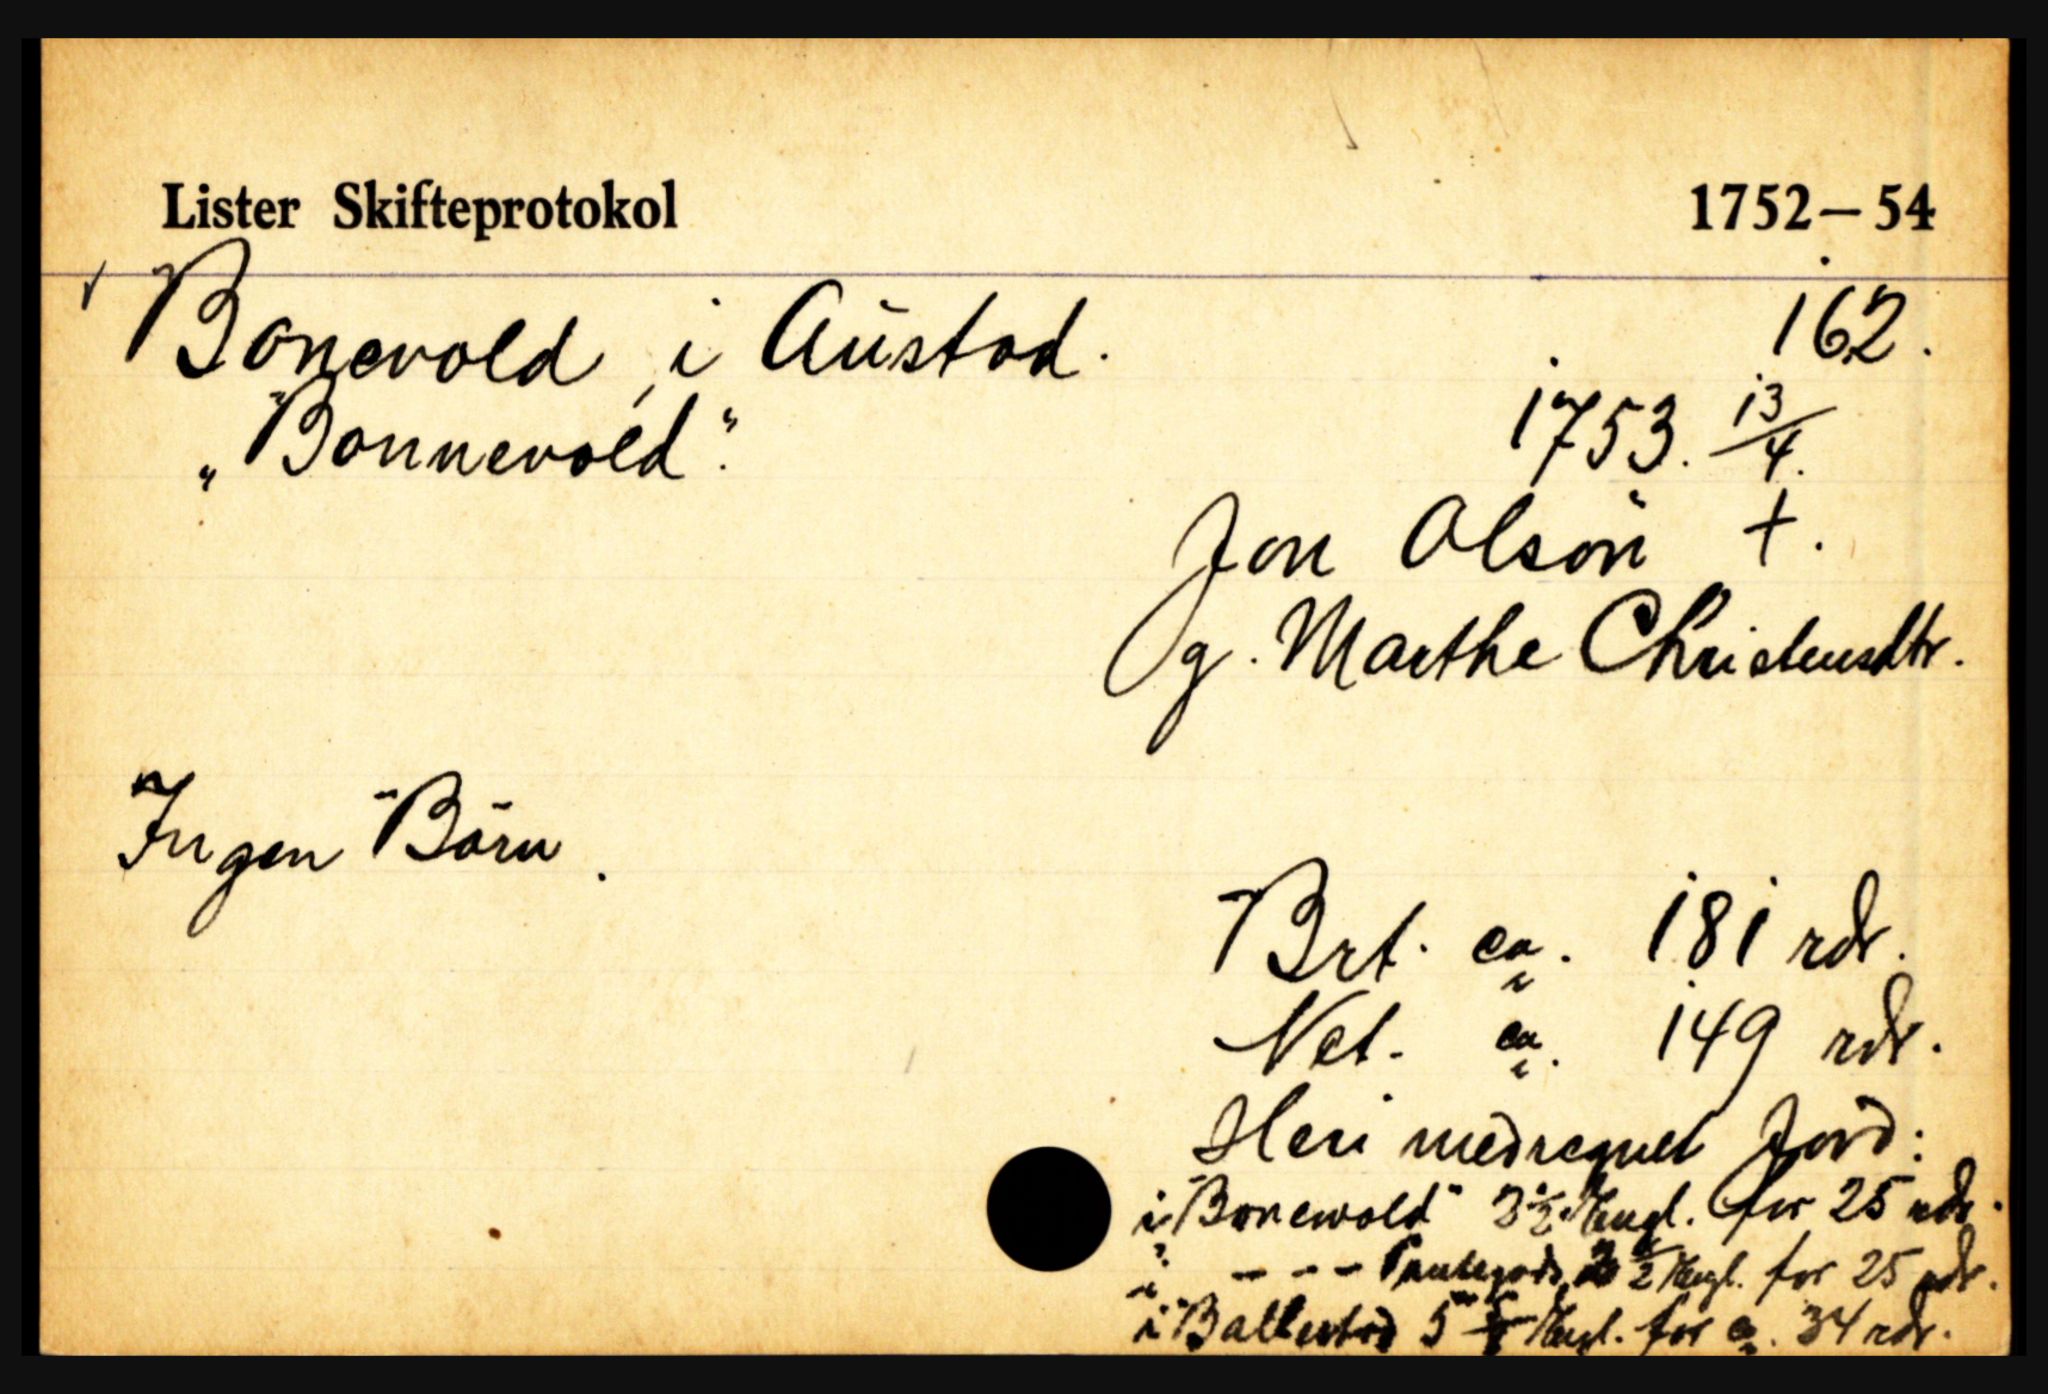 Lister Skifteprotokol 1752-54
Bonevold, i Austad. 162.
„Bonnevold". 1753. 13/4.
Jon Olson †.
g. Marthe Christensdtr.
Ingen Börn.
Brt. ca. 181 rdr.
Net. ca. 149 rdr.
Heri medregnet Jord:
i "Bonevold" 3 1/2 Hugl. for 25 rdr.
i - - - Pantegods 2 1/2 Hugl. for 25 rdr.
i "Ballestad 5 Hugl. for ca. 34 rdr.